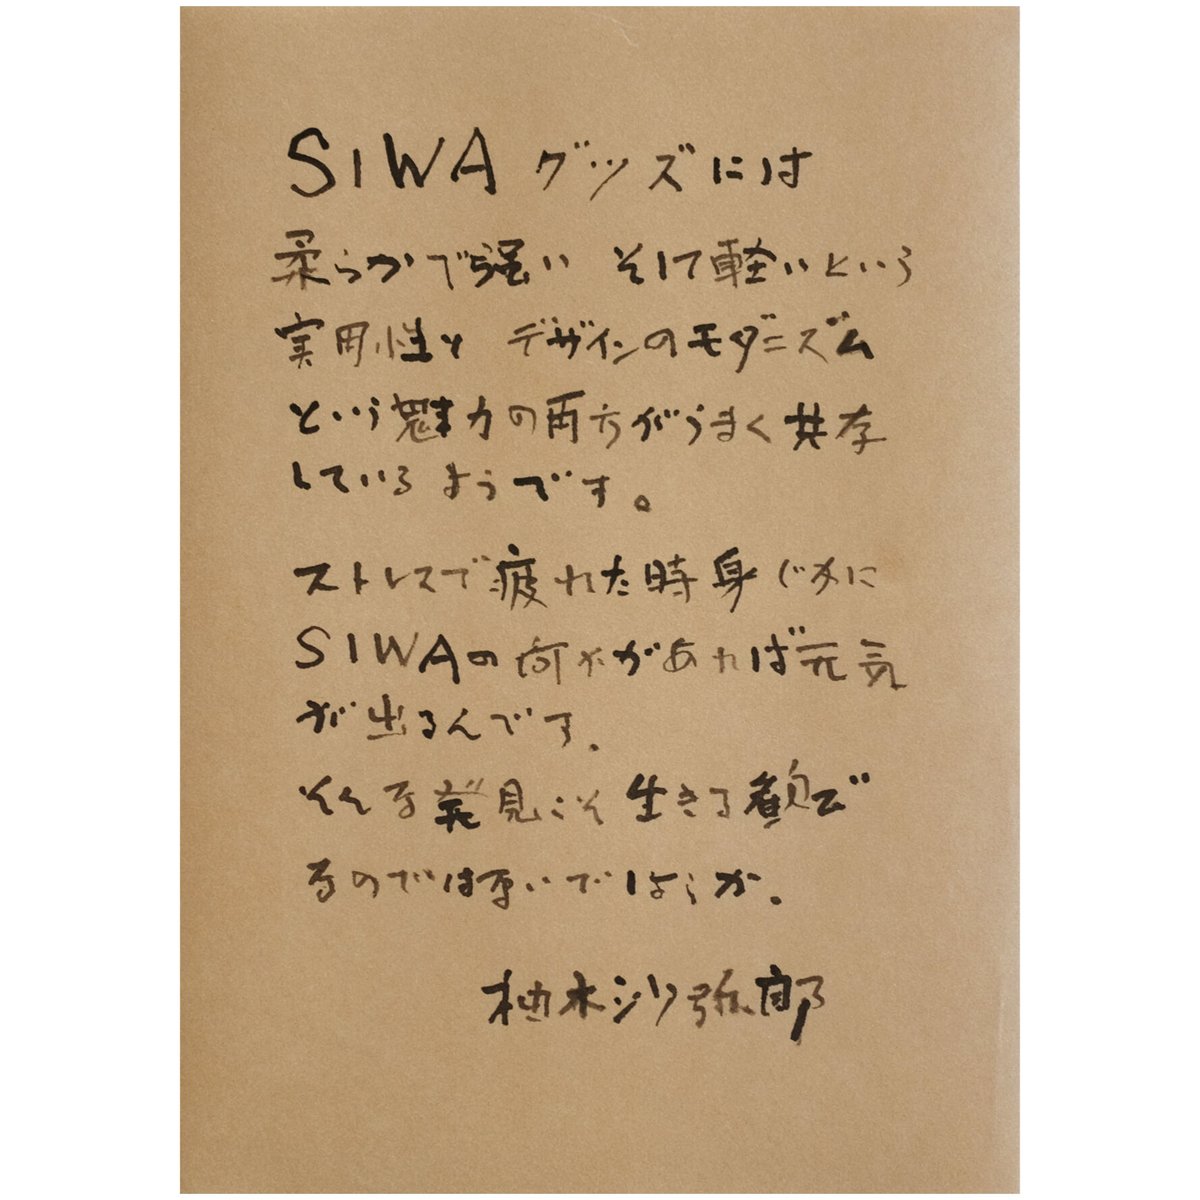 SIWA グッズには
柔らかで強い そして軽いという
実用性と デザインのモダニズム
という魅力の両方がうまく共存
しているようです。
ストレスで疲れた時身じかに
SIWAの何かがあれば元気
が出るんです。
そんな発見こそ生きる歓び
なのではないでしょうか。
柚木沙弥郎